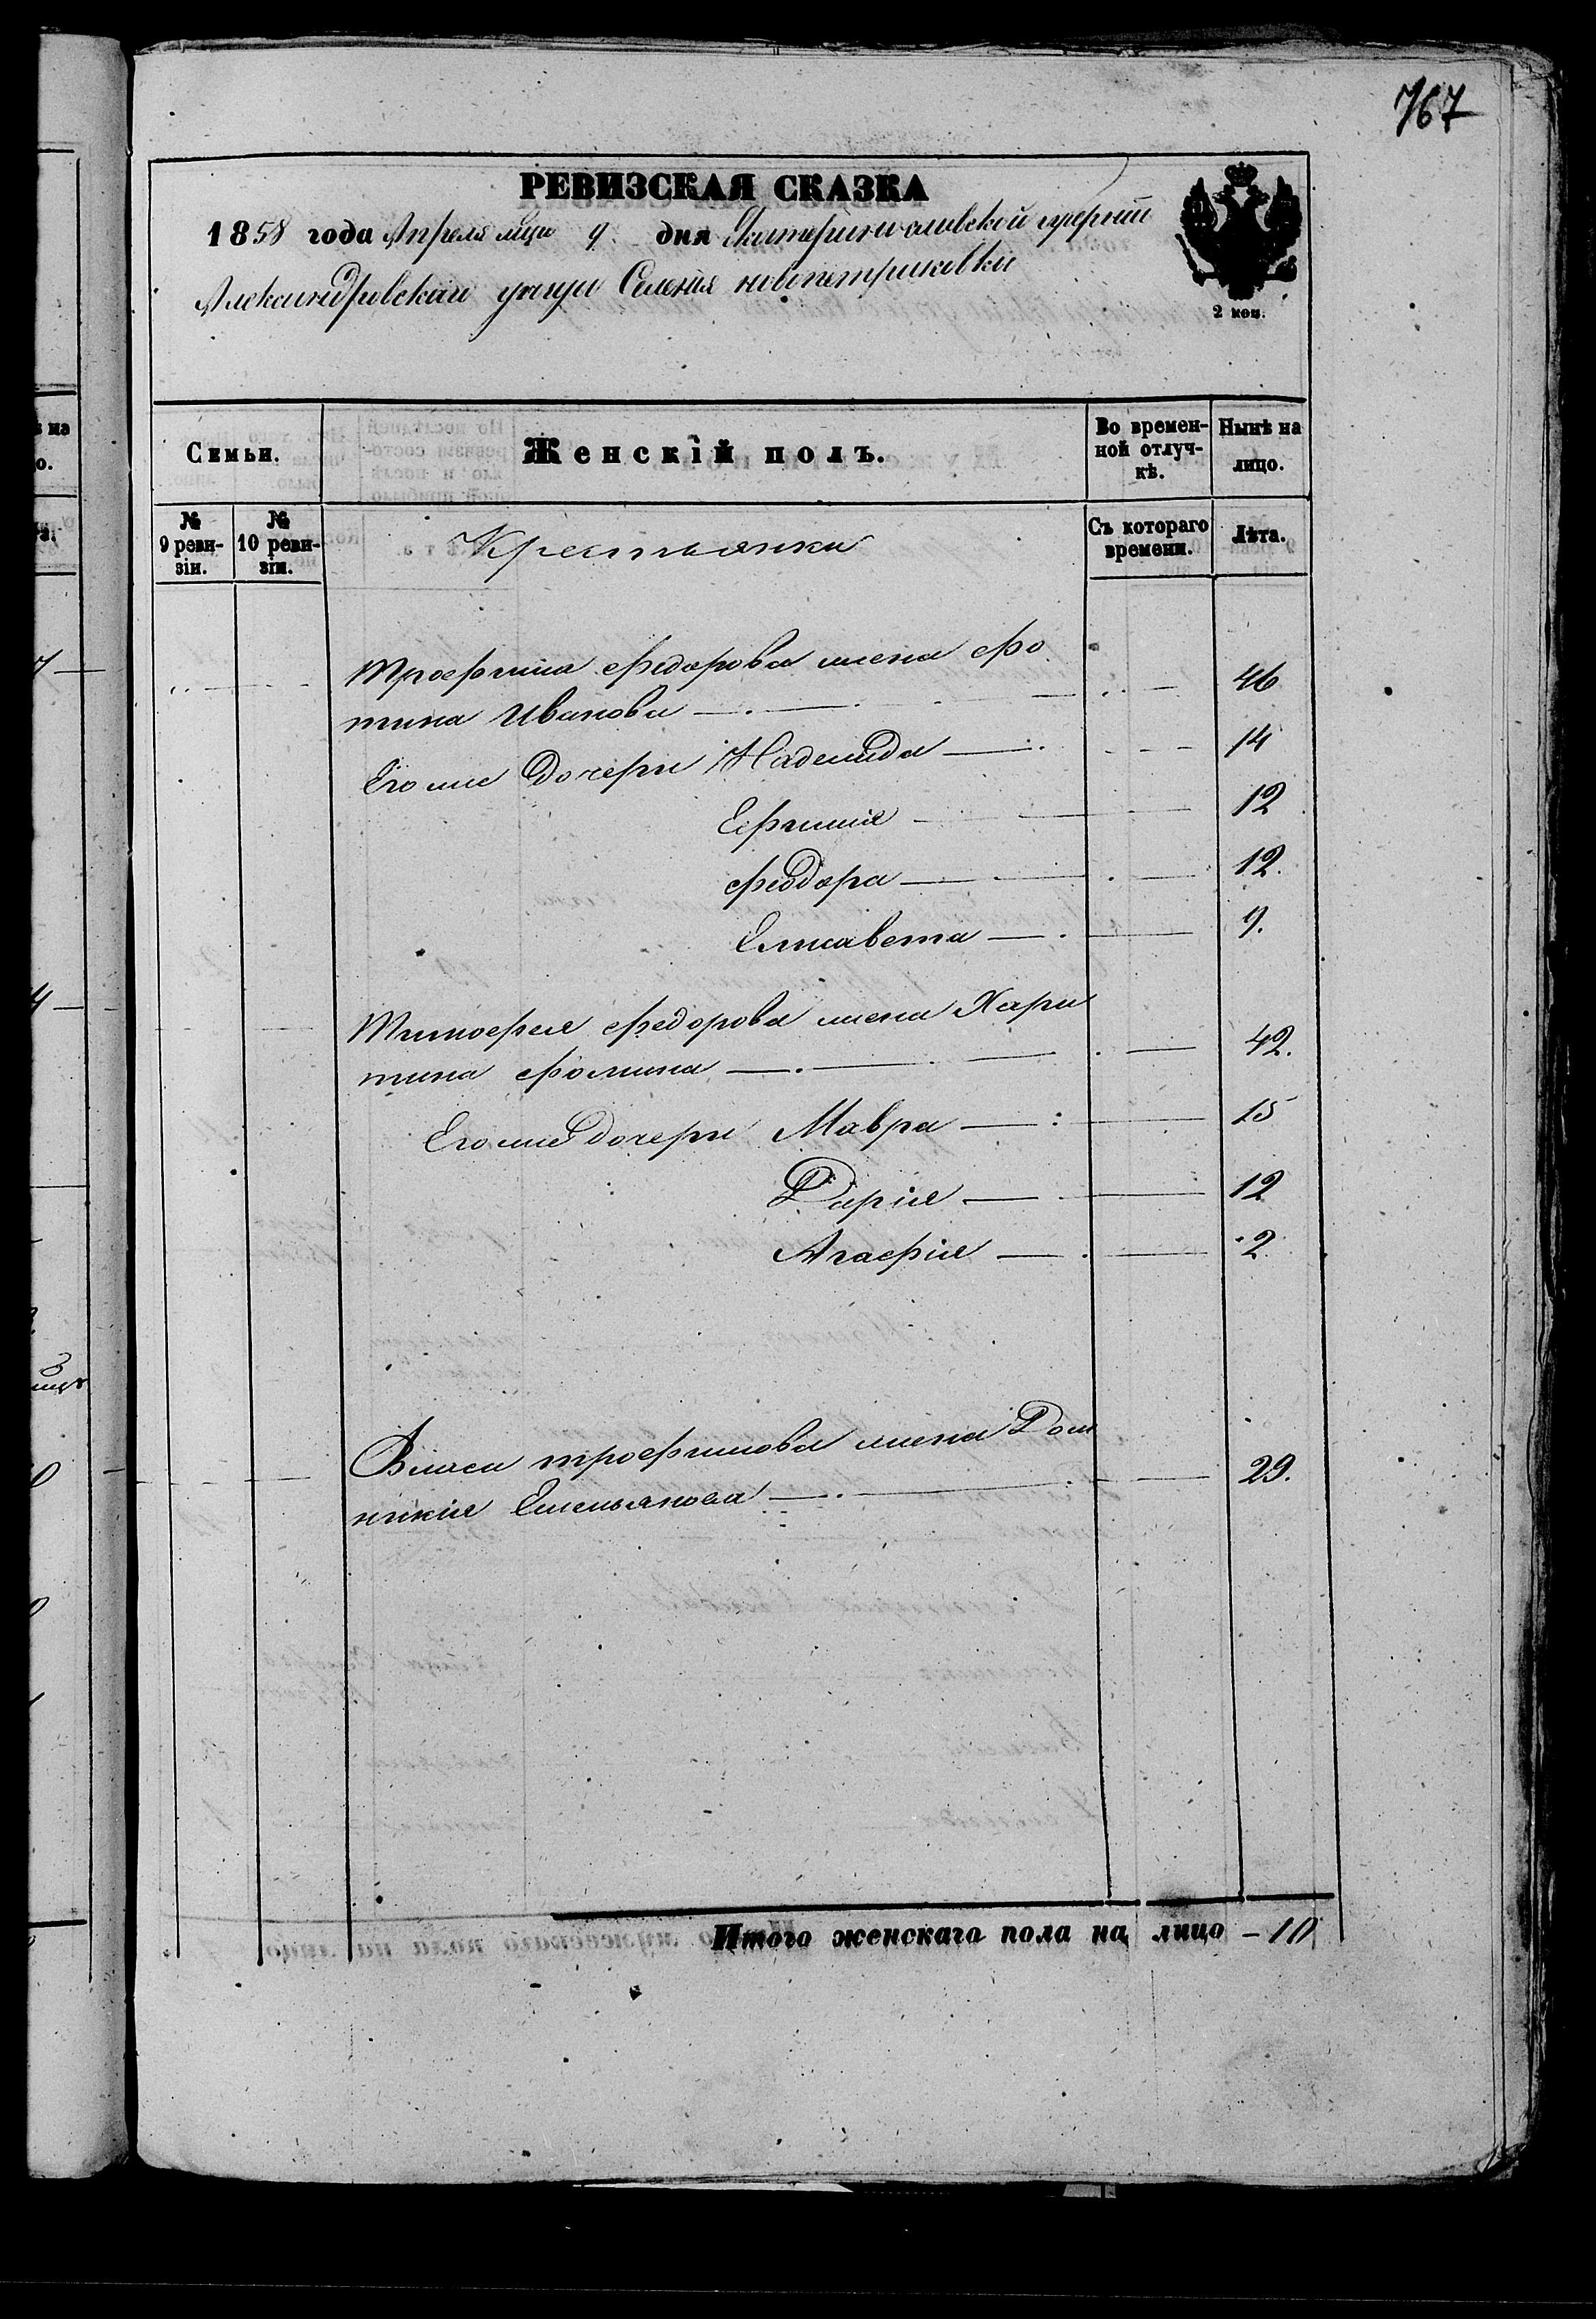 767
РЕВИЗСКАЯ СКАЗКА
1858 года Апреля мца 9. дня Екатеринославской губерніи
Александровскаго уезда Селенія новопетриковки
2 коп.
Семьи.
Женскій полъ.
Во времен-
ной отлуч-
кѣ.
Нынѣ на
лицо.
№
9 реви-
зіи.
№
10 реви-
зіи.
Крестьянки
Съ котораго
времени.
Лѣта.
Трофима Федорова жена Фо
тина Иванова 46
Его же Дочери Надежда 14
Ефимія 12
Федора 12.
Елисавета 9.
Тимофея Федорова жена Хари
тина Фомина 42.
Его же дочери Мавра 15
Дарія 12
Агафія 2.
Власа трофимова жена Дом
никія Емельянова 29.
Итого женскаго пола на лицо - 10